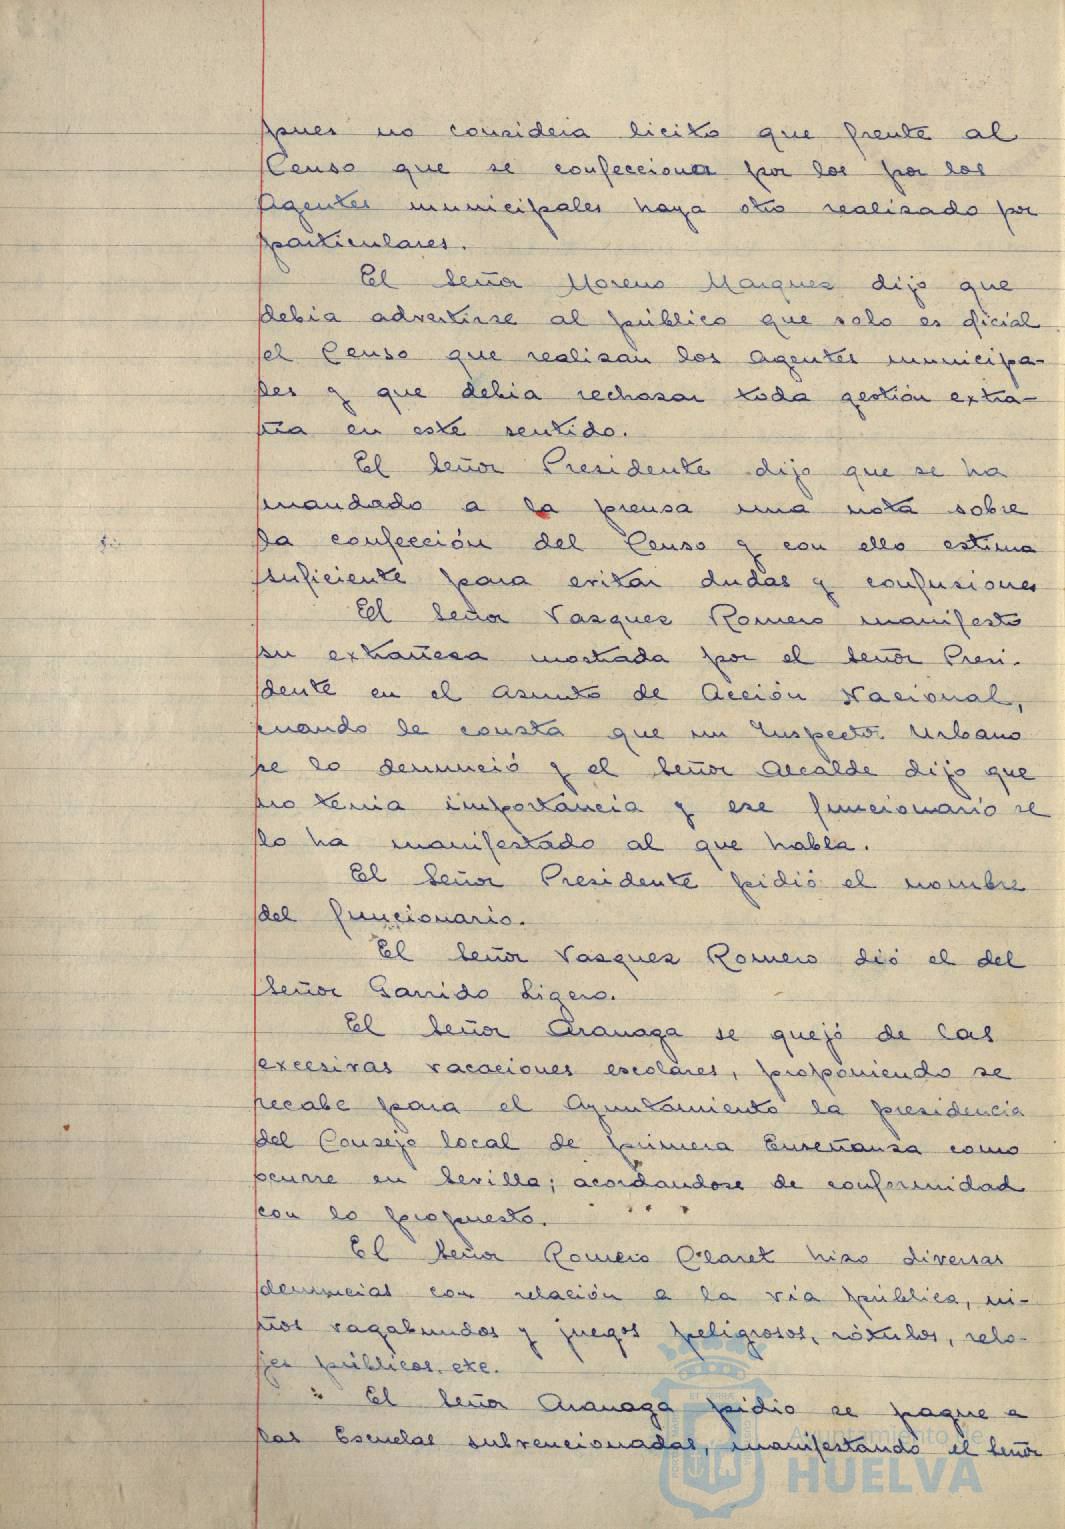 pues no considera licito que frente al
Censo que se confecciona por los por los
Agentes municipales haya otro realizado por
particulares.
El Señor Moreno Marquez dijo que
debia advertirse al público que solo es oficial
el Censo que realizan los Agentes municipa-
les y que debia rechazar toda gestión extra-
ña en este sentido.
El Señor Presidente dijo que se ha
mandado a la prensa una nota sobre
la confección del Censo y con ello estima
suficiente para evitar dudas y confusiones
El Señor Vazquez Romero manifesto
su extrañeza mostrada por el Señor Presi-
dente en el asunto de Acción Nacional,
cuando le consta que un Inspector Urbano
se lo denunció y el Señor Alcalde dijo que
no tenia importancia y ese funcionario se
lo ha manifestado al que habla.
El Señor Presidente pidió el nombre
del funcionario.
El Señor Vazquez Romero dió el del
Señor Garrido Ligero.
El Señor Aranaga se quejó de las
excesivas vacaciones escolares, proponiendo se
recabe para el Ayuntamiento la presidencia
del Consejo local de primera Enseñanza como
ocurre en Sevilla; acordandose de conformidad
con lo propuesto.
El Señor Romero Claret hizo diversas
denuncias con relación a la vía pública, ni-
ños vagabundos y juegos peligrosos, rótulos, relo-
jes públicos, etc.
El Señor Aranaga pidio se pague a
las Escuelas subvencionadas, manifestando el Señor
Ayuntamiento de
HUELVA